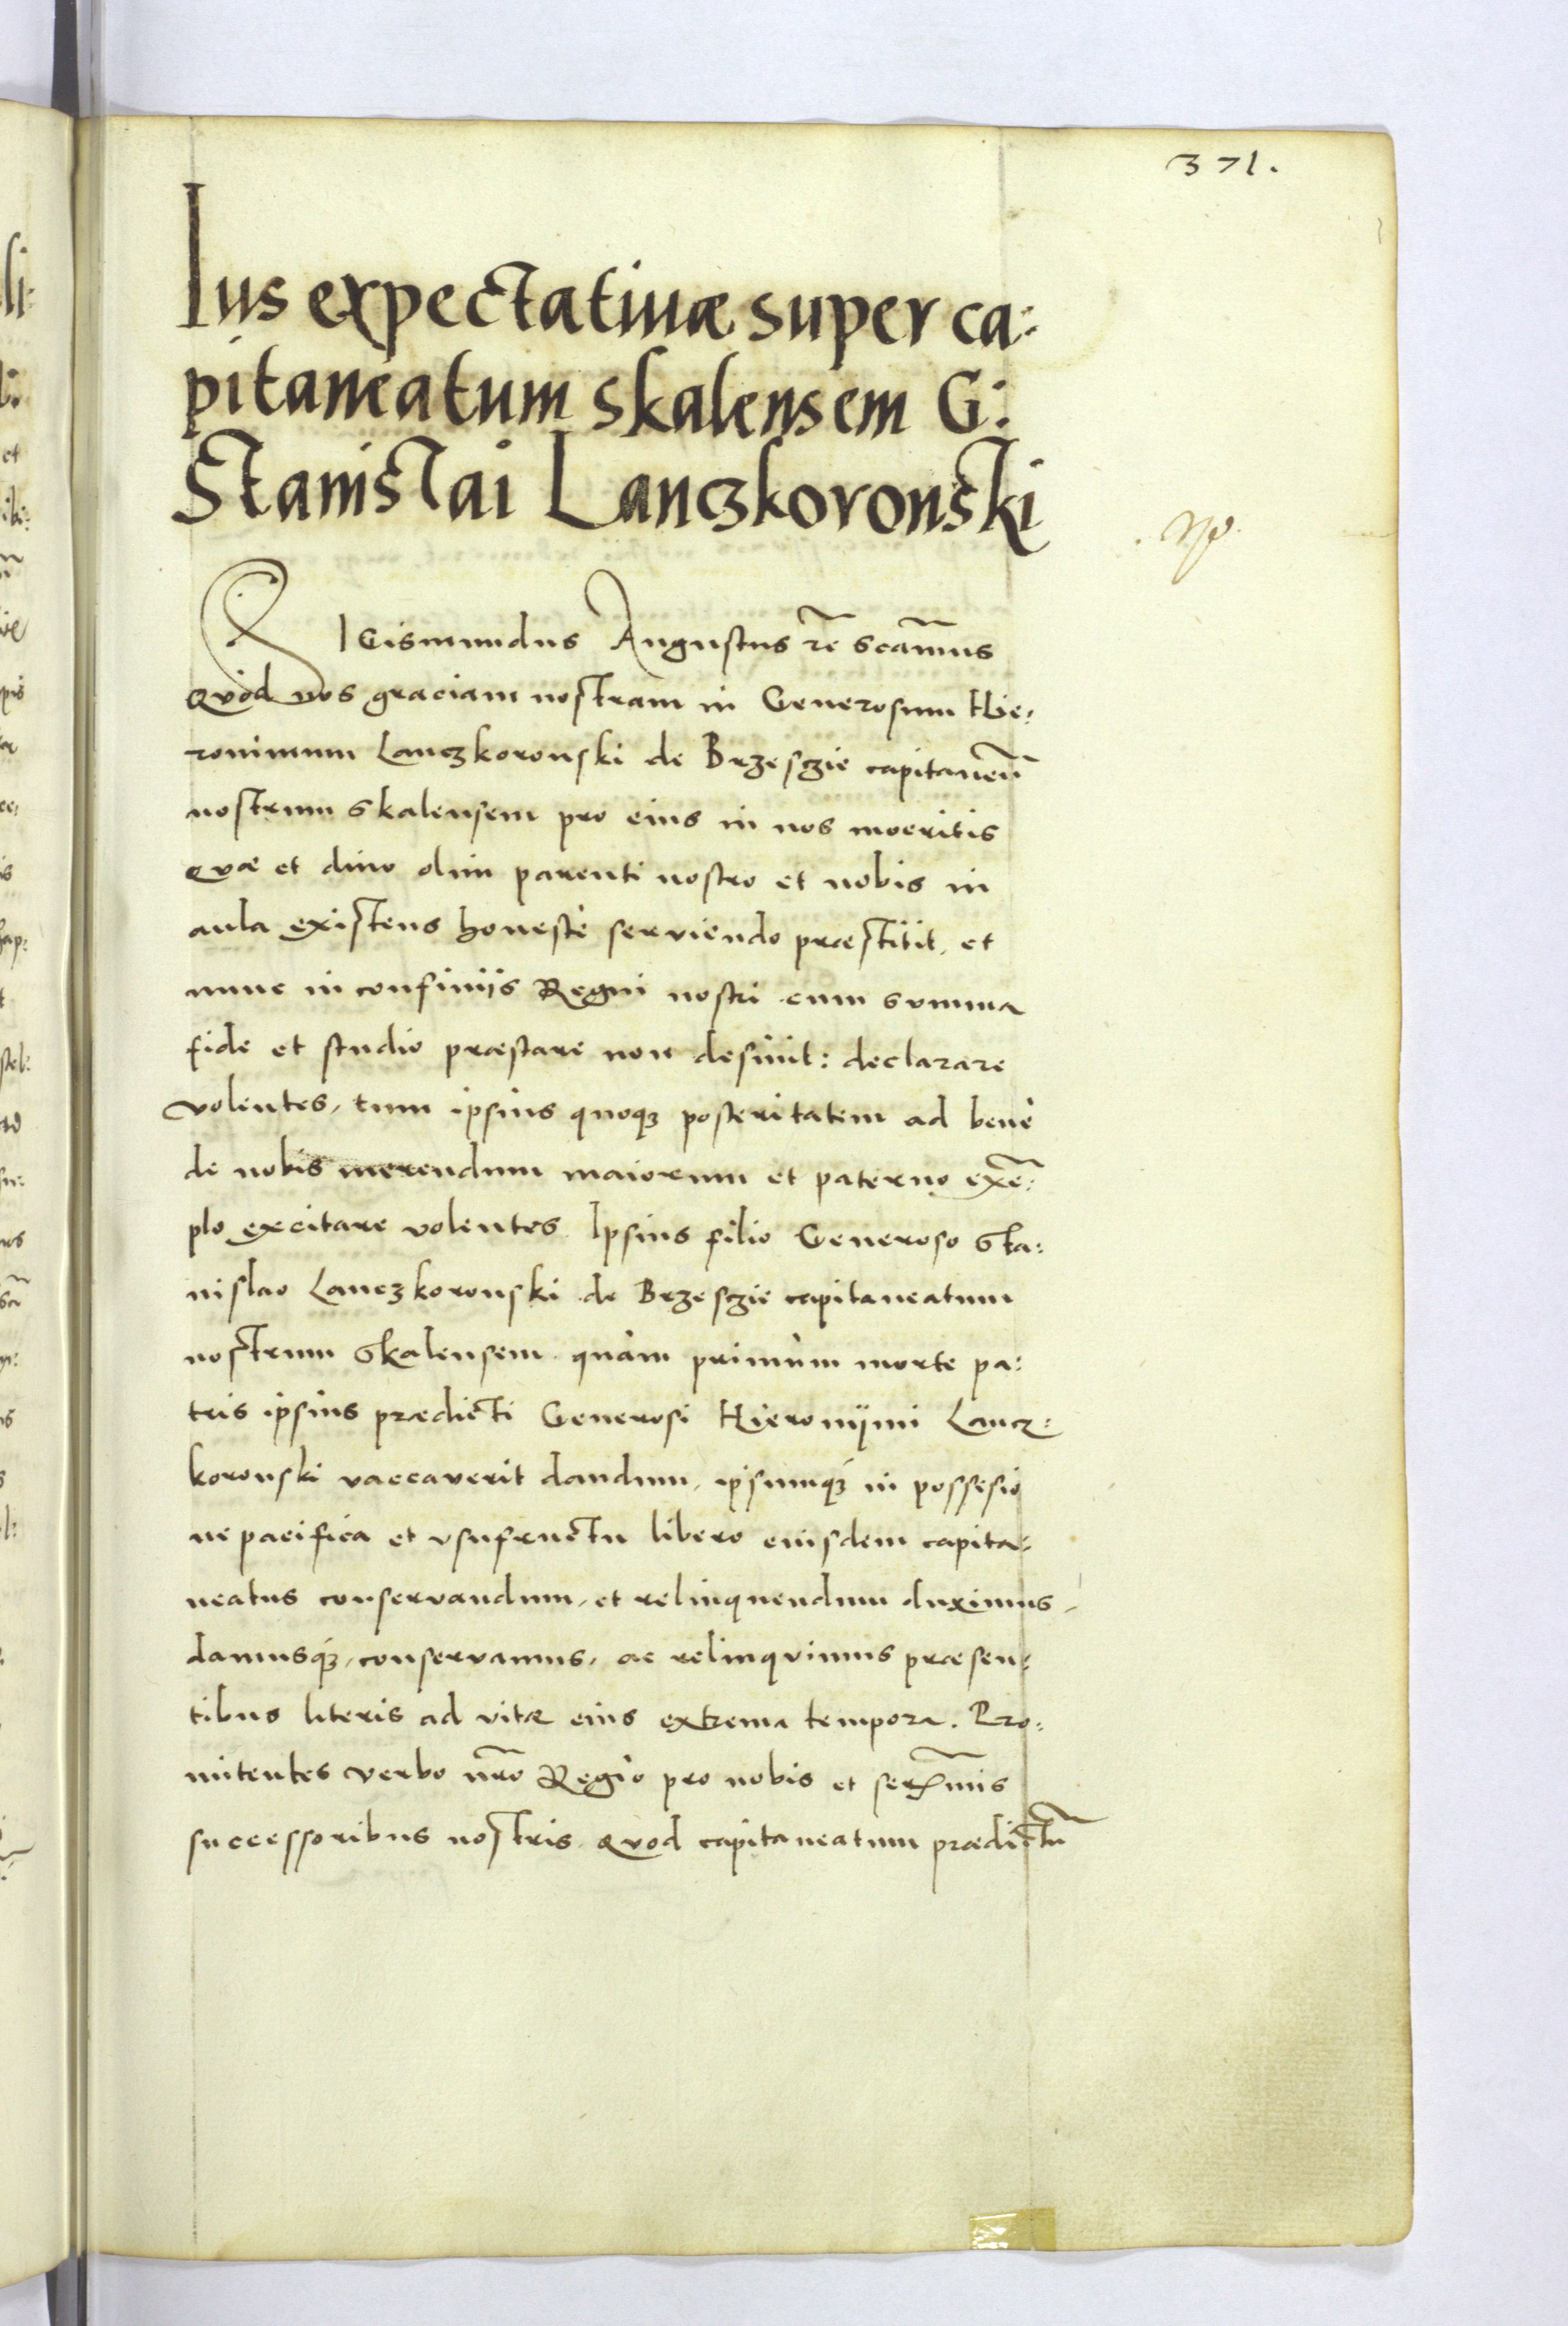 371.
Ius expectatiuæ super ca:
pitaneatum skalensem G:
Stanislai Lanczkoronski
SIGismundus Augustus rē scām̄us
Quòd nos graciam nostram in Generosum Hie:
ronimum Lanczkoronski de Brzesczie capitaneū
nostrum skalensem pro eius in nos moeritis
quæ et diuo olim parenti nostro et nobis in
aula existens honestè serviendo præstitit, et
nunc in confiniis Regni nostri cum summa
fide et studio præstare non desinit: declarare
volentes, tum ipsius quoqȝ posteritatem ad benè
de nobis merendum maiorum et paterno exē:
plo excitare volentes. Ipsius filio Generoso Sta:
nislao Lanczkoronski de Brzesczie capitaneatum
nostrum Skalensem quàm primùm morte pa:
tris ipsius prædicti Generosi Hieronijmi Lancz:
koronski vaccaverit dandum, ipsumqȝ in possesio
ne pacifica et vsufructu libero eiusdem capita:
neatus conservandum, et relinquendum duximus,
damusqȝ, conservamus, ac relinquimus præsen:
tibus literis ad vitæ eius extrema tempora. Pro:
mitentes verbo nr̄o Regio pro nobis et serēmis
successoribus nostris quod capitaneatum prædictū